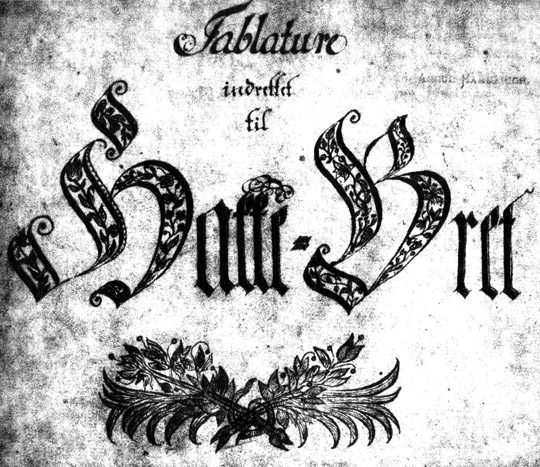 Tablature
indrettet
til
Hakke-Bret